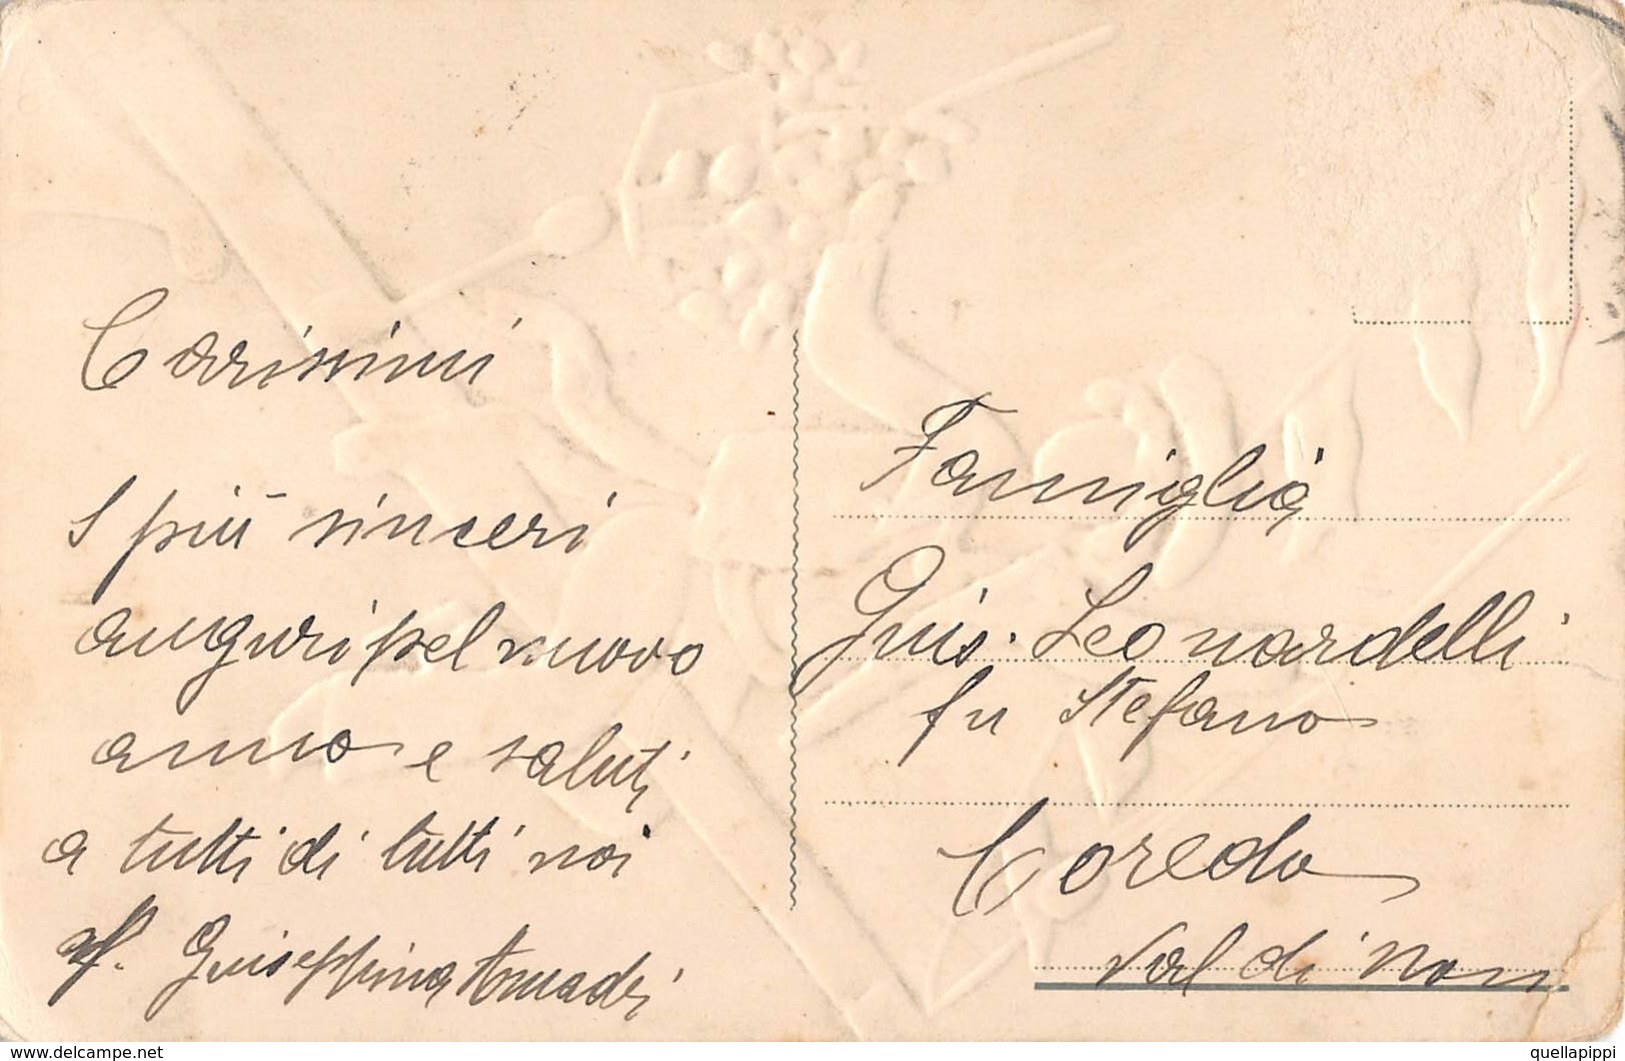 Carissimi
I più sinceri
auguri pel nuovo
anno e saluti
a tutti di tutti noi
Giuseppina Amadi
Famiglia
Guis. Leonardelli
fu Stefano
Coredo
Val di Non
delcampe.net
quellapippi